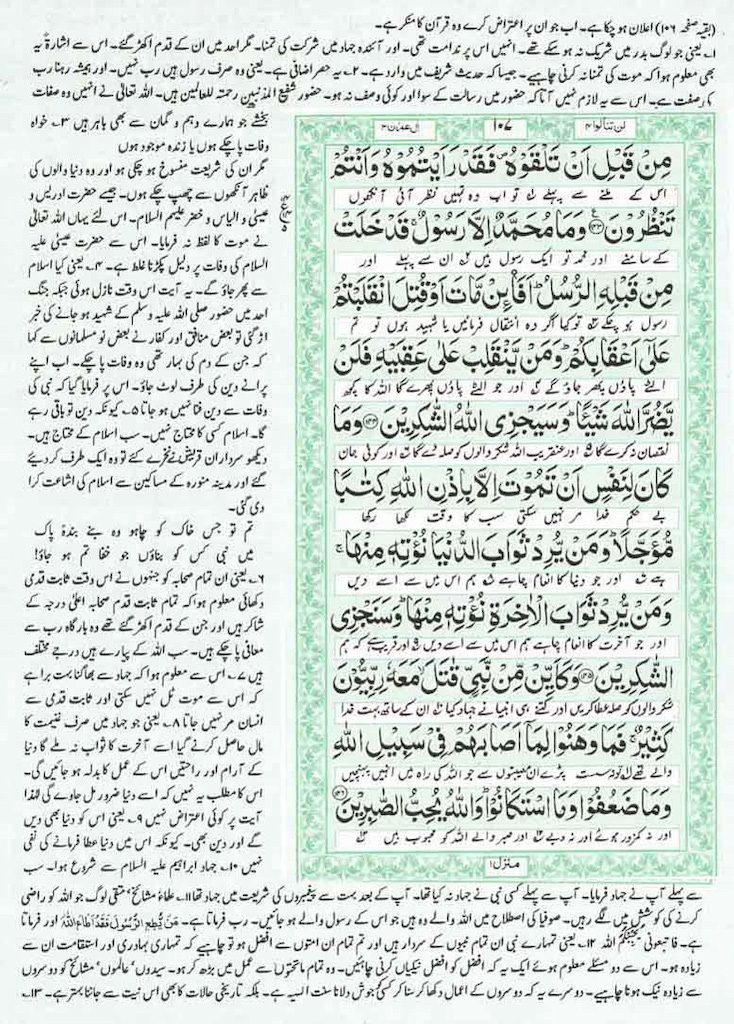 (بقیہ صفحہ ۱۰۶) اعلان ہو چکا ہے۔ اب جو ان پر اعتراض کرے وہ قرآن کا منکر ہے۔
۱۔ یعنی جو لوگ بدر میں شریک نہ ہو سکے تھے۔ انہیں اس پر ندامت تھی۔ اور آئندہ جہاد میں شرکت کی تمنا۔ مگر احد میں ان کے قدم اکھڑ گئے۔ اس سے اشارۃً یہ
بھی معلوم ہوا کہ موت کی تمنا نہ کرنی چاہیے۔ جیسا کہ حدیث شریف میں وارد ہے۔ ۲۔ یہ حصر اضافی ہے۔ یعنی وہ صرف رسول ہیں رب نہیں۔ اور ہمیشہ رہنا رب
کی صفت ہے۔ اس سے یہ لازم نہیں آتا کہ حضور میں رسالت کے سوا اور کوئی وصف نہ ہو۔ حضور شفیع المذنبین رحمتہ للعالمین ہیں۔ اللہ تعالیٰ نے انہیں وہ صفات
بخشے جو ہمارے وہم و گمان سے بھی باہر ہیں ۳۔ خواہ
وفات پا چکے ہوں یا زندہ موجود ہوں
مگر ان کی شریعت منسوخ ہو چکی ہو اور وہ دنیا والوں کی
ظاہر آنکھوں سے چھپ چکے ہوں۔ جیسے حضرت ادریس و
عیسیٰ و الیاس و خضر علیہم السلام۔ اس لئے یہاں اللہ تعالیٰ
نے موت کا لفظ نہ فرمایا۔ اس سے حضرت عیسیٰ علیہ
السلام کی وفات پر دلیل پکڑنا غلط ہے۔ ۴۔ یعنی کیا اسلام
سے پھر جاؤ گے۔ یہ آیت اس وقت نازل ہوئی جبکہ جنگ
احد میں حضور صلی اللہ علیہ وسلم کے شہید ہو جانے کی خبر
اڑ گئی تو بعض منافق اور کفار نے بعض نو مسلمانوں سے کہا
کہ جن کے دم کی بہار تھی وہ وفات پا چکے۔ اب اپنے
پرانے دین کی طرف لوٹ جاؤ۔ اس پر فرمایا گیا کہ نبی کی
وفات سے دین فنا نہیں ہو جاتا ۵۔ کیونکہ دین تو باقی رہے
گا۔ اسلام کسی کا محتاج نہیں۔ سب اسلام کے محتاج ہیں۔
دیکھو سرداران قریش نے نخرے کئے تو وہ ایک طرف کر دیئے
گئے اور مدینہ منورہ کے مساکین سے اسلام کی اشاعت کرا
دی گئی۔
تم تو جس خاک کو چاہو وہ بنے بندہ پاک
میں نبی کس کو بناؤں جو خفا تم ہو جاؤ!
۶۔ یعنی ان تمام صحابہ کو جنہوں نے اس وقت ثابت قدمی
دکھائی معلوم ہوا کہ تمام ثابت قدم صحابہ اعلیٰ درجہ کے
شاکر ہیں اور جن کے قدم اکھڑ گئے تھے وہ بارگاہ رب سے
معافی پا چکے ہیں۔ سب اللہ کے پیارے ہیں درجے مختلف
ہیں ۷۔ اس سے معلوم ہوا کہ جہاد سے بھاگنا بہت برا ہے
کہ اس سے موت ٹل نہیں سکتی اور ثابت قدمی سے
انسان مر نہیں جاتا ۸۔ یعنی جو جہاد میں صرف غنیمت کا
مال حاصل کرنے گیا اسے آخرت کا ثواب نہ ملے گا دنیا
کے آرام اور راحتیں اس کے عمل کا بدلہ ہو جائیں گی۔
اس کا مطلب یہ نہیں کہ اسے دنیا ضرور مل جاوے گی لہٰذا
آیت پر کوئی اعتراض نہیں ۹۔ یعنی اس کو دنیا بھی دیں
گے اور دین بھی۔ کیونکہ اس میں دنیا عطا فرمانے کی نفی
نہیں ۱۰۔ جہاد ابراہیم علیہ السلام سے شروع ہوا۔ سب
لن تنالوا ۴ ۱۰۷ ال عمرٰن ۳
مِنْ قَبْلِ اَنْ تَلْقَوْهُ ۪ فَقَدْ رَاَیْتُمُوْهُ وَاَنْتُمْ
اس کے ملنے سے پہلے تو اب وہ تمہیں نظر آئی آنکھوں
تَنْظُرُوْنَ ﴿۱۴۳﴾ وَمَا مُحَمَّدٌ اِلَّا رَسُوْلٌ ۚ قَدْ خَلَتْ
کے سامنے اور محمد تو ایک رسول ہیں ان سے پہلے اور
مِنْ قَبْلِهِ الرُّسُلُ ؕ اَفَا۠ئِنْ مَّاتَ اَوْ قُتِلَ انْقَلَبْتُمْ
رسول ہو چکے تو کیا اگر وہ انتقال فرمائیں یا شہید ہوں تو تم
عَلٰۤی اَعْقَابِكُمْ ؕ وَمَنْ یَّنْقَلِبْ عَلٰی عَقِبَیْهِ فَلَنْ
الٹے پاؤں پھر جاؤ گے اور جو الٹے پاؤں پھرے گا اللہ کا کچھ
یَّضُرَّ اللّٰهَ شَیْـًٔا ؕ وَسَیَجْزِی اللّٰهُ الشّٰكِرِیْنَ ﴿۱۴۴﴾ وَمَا
نقصان نہ کرے گا اور عنقریب اللہ شکر والوں کو صلہ دے گا اور کوئی جان
كَانَ لِنَفْسٍ اَنْ تَمُوْتَ اِلَّا بِاِذْنِ اللّٰهِ كِتٰبًا
بے حکم خدا مر نہیں سکتی سب کا وقت لکھا رکھا
مُّؤَجَّلًا ؕ وَمَنْ یُّرِدْ ثَوَابَ الدُّنْیَا نُؤْتِهٖ مِنْهَا ۚ
ہے اور جو دنیا کا انعام چاہے ہم اس میں سے اسے دیں
وَمَنْ یُّرِدْ ثَوَابَ الْاٰخِرَةِ نُؤْتِهٖ مِنْهَا ؕ وَسَنَجْزِی
اور جو آخرت کا انعام چاہے ہم اس میں سے اسے دیں اور قریب ہے کہ ہم
الشّٰكِرِیْنَ ﴿۱۴۵﴾ وَكَاَیِّنْ مِّنْ نَّبِیٍّ قٰتَلَ ۙ مَعَهٗ رِبِّیُّوْنَ
شکر والوں کو صلہ عطا کریں اور کتنے ہی انبیا نے جہاد کیا ان کے ساتھ بہت خدا
كَثِیْرٌ ۚ فَمَا وَهَنُوْا لِمَاۤ اَصَابَهُمْ فِیْ سَبِیْلِ اللّٰهِ
والے تھے تو نہ سست پڑے ان مصیبتوں سے جو اللہ کی راہ میں انہیں پہنچیں
وَمَا ضَعُفُوْا وَمَا اسْتَكَانُوْا ؕ وَاللّٰهُ یُحِبُّ الصّٰبِرِیْنَ ﴿۱۴۶﴾
اور نہ کمزور ہوئے اور نہ دبے اور صبر والے اللہ کو محبوب ہیں
منزل ۱
سے پہلے آپ نے جہاد فرمایا۔ آپ سے پہلے کسی نبی نے جہاد نہ کیا تھا۔ آپ کے بعد بہت سے پیغمبروں کی شریعت میں جہاد تھا ۱۱۔ علماء مشائخ، متقی لوگ جو اللہ کو راضی
کرنے کی کوشش میں لگے رہیں۔ صوفیا کی اصطلاح میں اللہ والے وہ ہیں جو اس کے رسول والے ہو جائیں۔ رب فرماتا ہے۔ مَنْ یُّطِعِ الرَّسُوْلَ فَقَدْ اَطَاعَ اللّٰهَ اور فرماتا
ہے۔ فاتبعونی یحببکم اللہ ۱۲۔ یعنی تمہارے نبی ان تمام نبیوں کے سردار ہیں اور تم تمام ان امتوں سے افضل ہو تو چاہیے کہ تمہاری بہادری اور استقامت ان سے
زیادہ ہو۔ اس سے دو مسئلے معلوم ہوئے ایک یہ کہ افضل کو افضل نیکیاں کرنی چاہئیں۔ وہ تمام ماتحتوں سے عمل میں بڑھ کر ہو۔ سیدوں، عالموں، مشائخ کو دوسروں
سے زیادہ نیک ہونا چاہیے۔ دوسرے یہ کہ دوسروں کے اعمال دکھا کر سنا کر کسی کو جوش دلانا سنت الٰہیہ ہے۔ بلکہ تاریخی حالات کا بھی اس نیت سے جاننا بہتر ہے۔ ۱۳۔